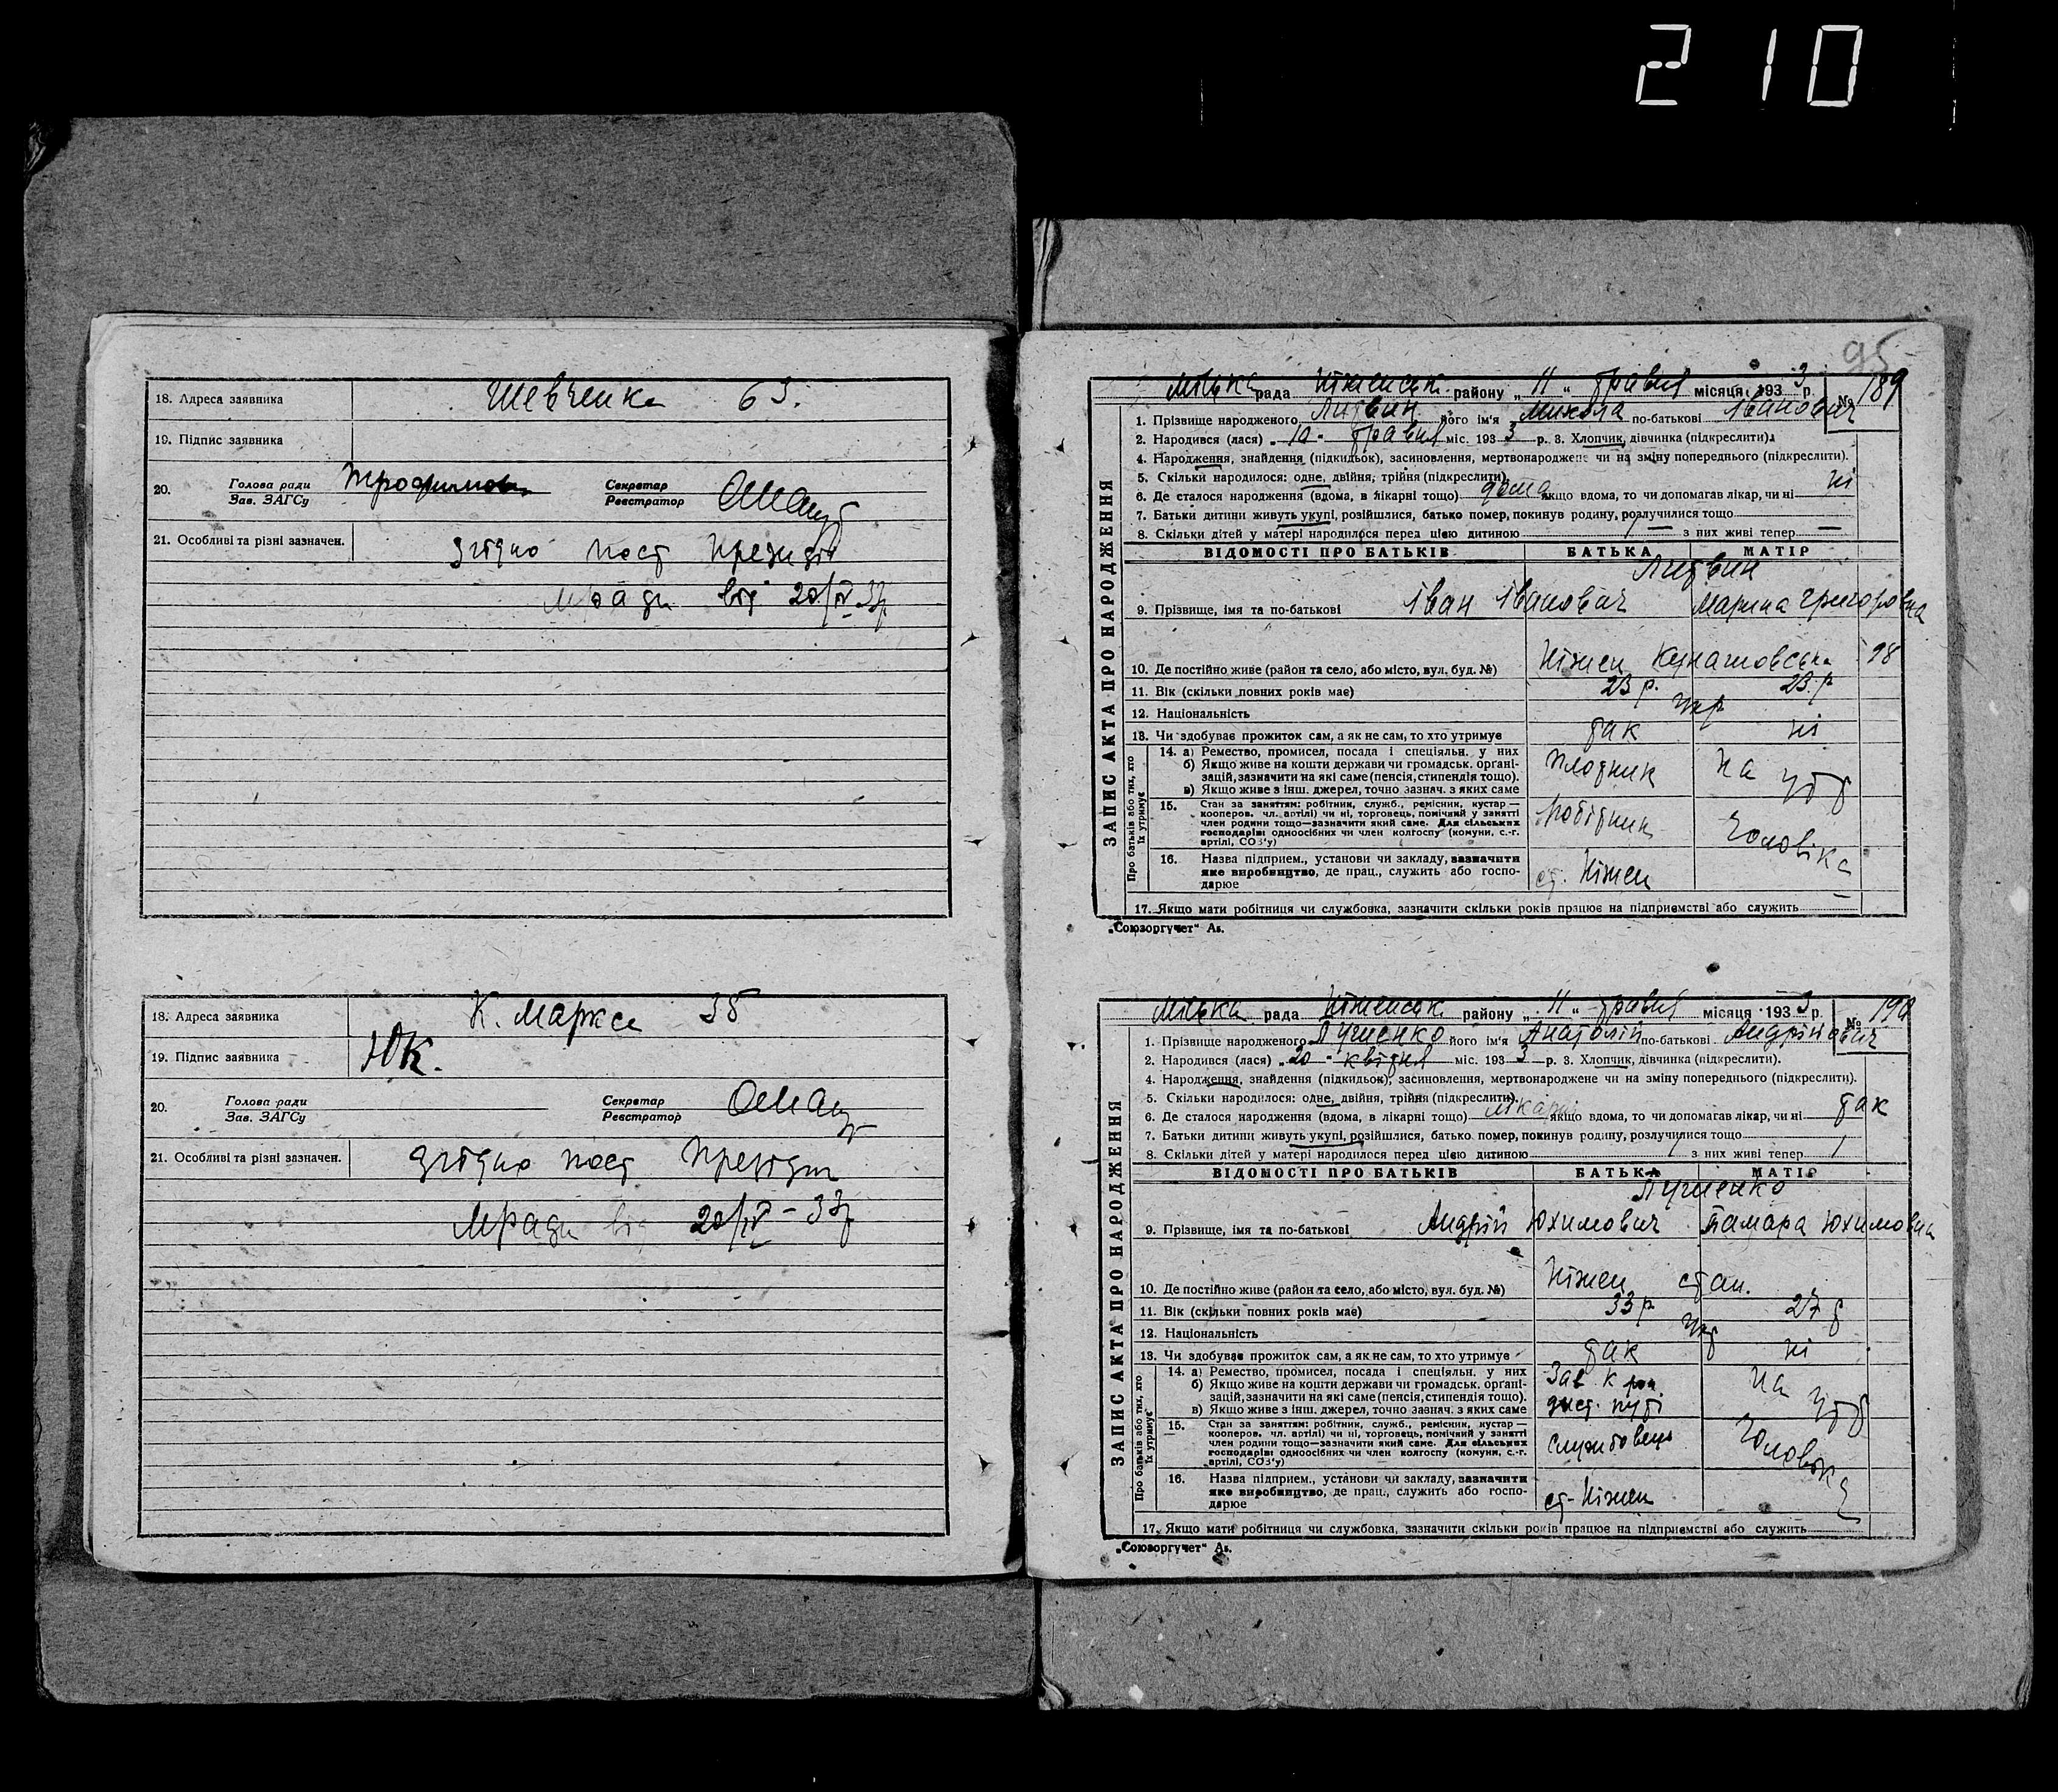 210
18. Адреса заявника Шевченка 63.
19. Підпис заявника
20. Голова ради Зав. ЗАГСу Секретар Реєстратор
21. Особливі та різні зазначен. згідно пост Президії
Мради від 20/IV 33р
18. Адреса заявника К. Маркса 38
19. Підпис заявника ЮК.
20. Голова ради Зав. ЗАГСу Секретар Реєстратор
21. Особливі та різні зазначен. згідно пост Президії
Мради від 20/IV – 33р
95
ЗАПИС АКТА ПРО НАРОДЖЕННЯ
Міська рада Ніженськ. району „ 11 “ травня місяця 1933 р. № 189
1. Прізвище народженого Литвин його ім'я Микола по-батькові Іванович
2. Народився (лася) „ 10 " травня міс. 1933 р. 3. Хлопчик, дівчинка (підкреслити).
4. Народження, знайдення (підкидьок), засиновлення, мертвонароджене чи на зміну попереднього (підкреслити).
5. Скільки народилося: одне, двійня, трійня (підкреслити).
6. Де сталося народження (вдома, в лікарні тощо) дома якщо вдома, то чи допомагав лікар, чи ні ні
7. Батьки дитини живуть укупі, розійшлися, батько помер, покинув родину, розлучилися тощо
8. Скільки дітей у матері народилося перед цією дитиною — з них живі тепер —
ВІДОМОСТІ ПРО БАТЬКІВ БАТЬКА МАТІР
Литвин
9. Прізвище, імя та по-батькові Іван Іванович Марина Григоровна
10. Де постійно живе (район та село, або місто, вул. буд. №) Ніжен Кунашовська 98
11. Вік (скільки повних років має) 23 р. 23 р
12. Національність укр
13. Чи здобуває прожиток сам, а як не сам, то хто утримує так ні
Про батьків або тих, хто їх утримує
14. а) Ремество, промисел, посада і спеціяльн. у них
б) Якщо живе на кошти держави чи громадськ. організацій, зазначити на які саме (пенсія, стипендія тощо).
в) Якщо живе з інш. джерел, точно зазнач. з яких саме
Плотник На утр
15. Стан за заняттям: робітник, служб., ремісник, кустар —
кооперов. чл. артілі) чи ні, торговець, помічний у занятті
член родини тощо—зазначити який саме. Для сільських
господарів: одноосібних чи член колгоспу (комуни, с.-г.
артілі, СОЗ'у)
Робітник Чоловіка
16. Назва підприєм., установи чи закладу, зазначити
яке виробництво, де прац., служить або госпо-
дарює
ст. Ніжен
17. Якщо мати робітниця чи службовка, зазначити скільки років працює на підприємстві або служить —
„Союзоргучет“ Аз.
ЗАПИС АКТА ПРО НАРОДЖЕННЯ
Міська рада Ніженськ району „ 11 “ травня місяця 1933 р. № 190
1. Прізвище народженого Луценко його ім'я Анатолій по-батькові Андрійович
2. Народився (лася) „ 20 " квітня міс. 1933 р. 3. Хлопчик, дівчинка (підкреслити).
4. Народження, знайдення (підкидьок), засиновлення, мертвонароджене чи на зміну попереднього (підкреслити).
5. Скільки народилося: одне, двійня, трійня (підкреслити).
6. Де сталося народження (вдома, в лікарні тощо) лікарні якщо вдома, то чи допомагав лікар, чи ні так
7. Батьки дитини живуть укупі, розійшлися, батько помер, покинув родину, розлучилися тощо
8. Скільки дітей у матері народилося перед цією дитиною 1 з них живі тепер 1
ВІДОМОСТІ ПРО БАТЬКІВ БАТЬКА МАТІР
Луценко
9. Прізвище, імя та по-батькові Андрій Юхимович Тамара Юхимовна
10. Де постійно живе (район та село, або місто, вул. буд. №) Ніжен стан.
11. Вік (скільки повних років має) 33 р 27 р
12. Національність укр
13. Чи здобуває прожиток сам, а як не сам, то хто утримує так ні
Про батьків або тих, хто їх утримує
14. а) Ремество, промисел, посада і спеціяльн. у них
б) Якщо живе на кошти держави чи громадськ. організацій, зазначити на які саме (пенсія, стипендія тощо).
в) Якщо живе з інш. джерел, точно зазнач. з яких саме
Зав. дист. путі На утр
15. Стан за заняттям: робітник, служб., ремісник, кустар —
кооперов. чл. артілі) чи ні, торговець, помічний у занятті
член родини тощо—зазначити який саме. Для сільських
господарів: одноосібних чи член колгоспу (комуни, с.-г.
артілі, СОЗ'у)
службовець Чоловіка
16. Назва підприєм., установи чи закладу, зазначити
яке виробництво, де прац., служить або госпо-
дарює
ст. Ніжен
17. Якщо мати робітниця чи службовка, зазначити скільки років працює на підприємстві або служить
„Союзоргучет“ Аз.